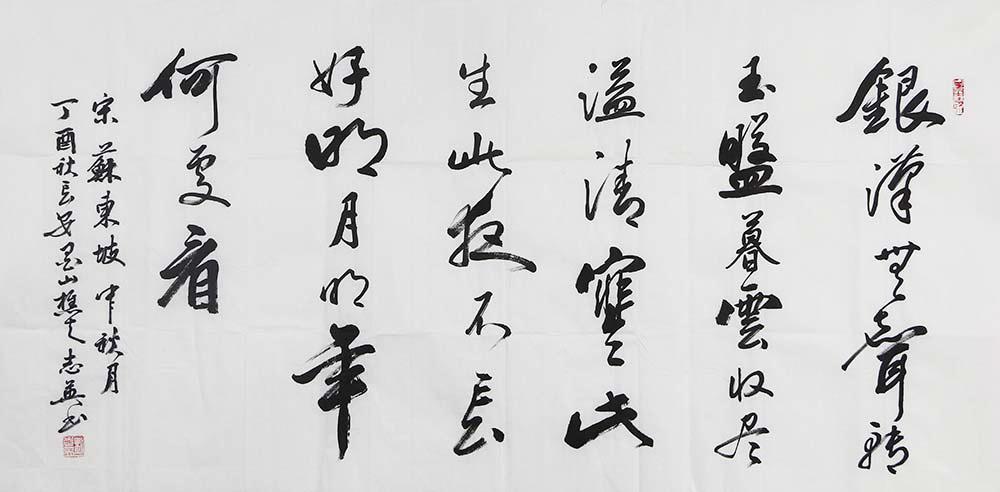 銀漢無聲轉
玉盤暮雲收尽
溢清寒此
生此夜不長
好明月明年
何處看
宋蘇東坡中秋月
丁酉秋長安山樵夫志英书